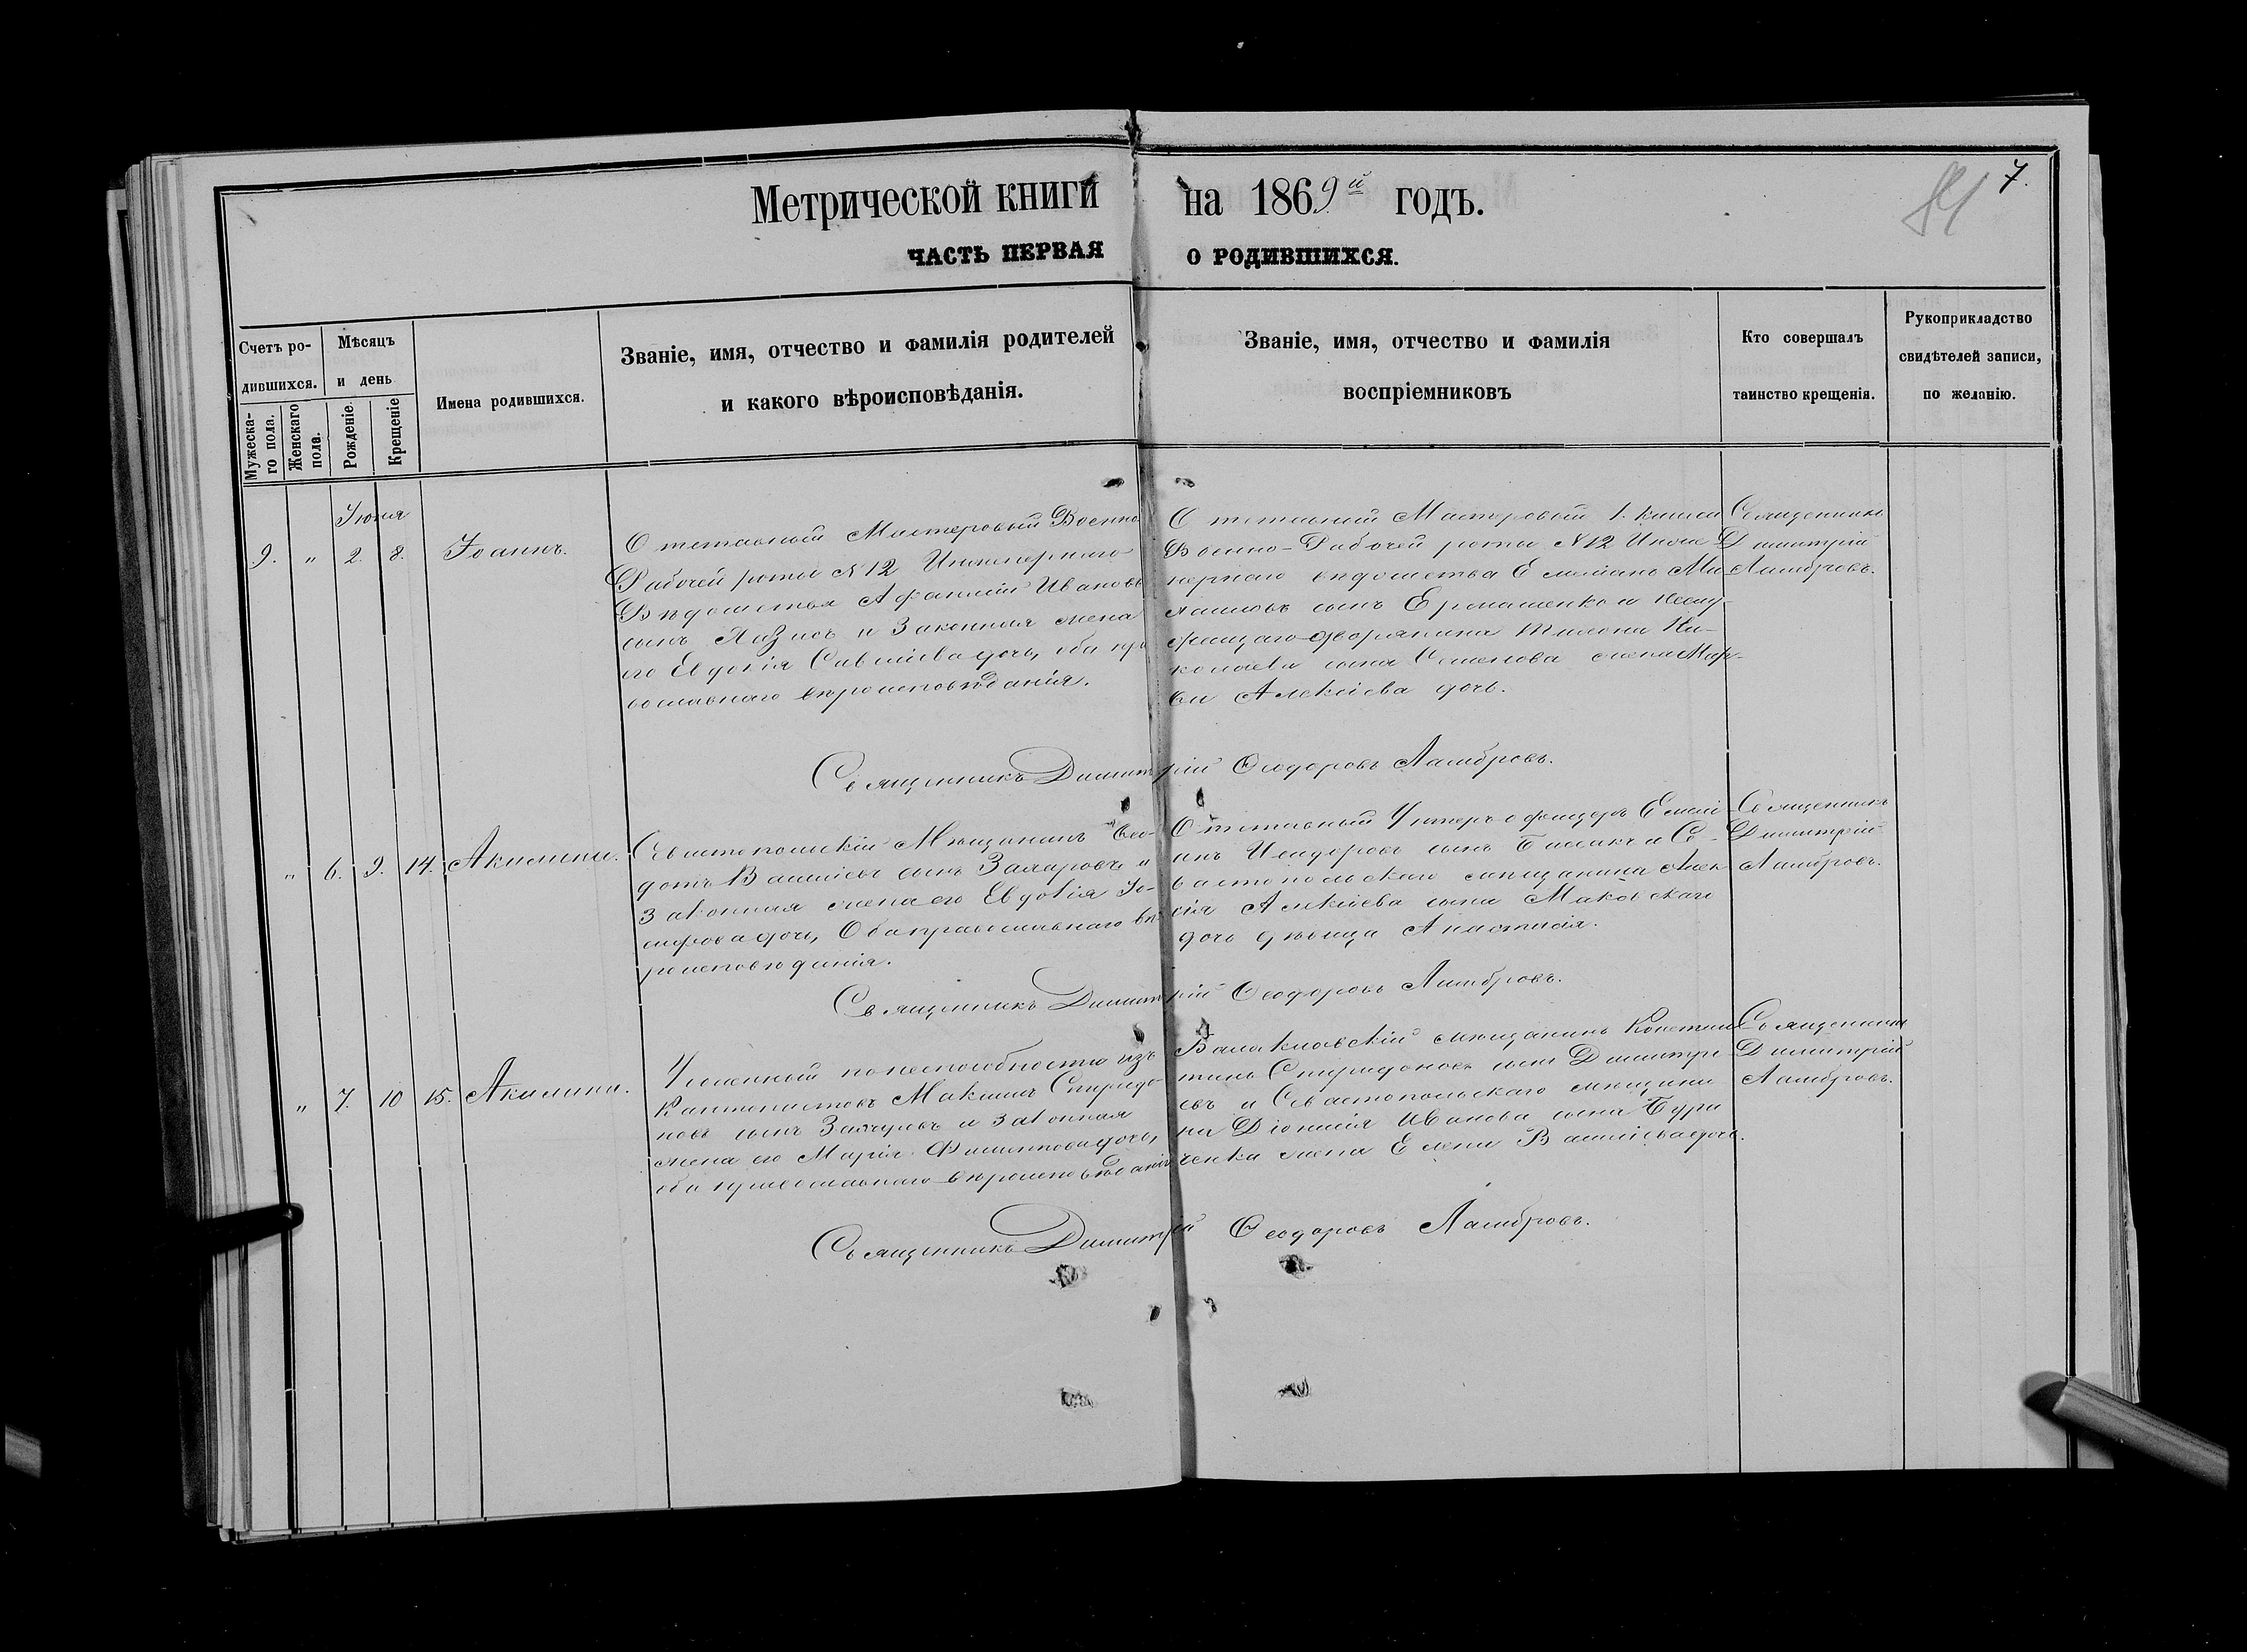 Метрической книги на 1869й годъ.
7.
ЧАСТЬ ПЕРВАЯ О РОДИВШИХСЯ.
Счетъ родившихся.
Мужескаго пола.
Женскаго пола.
Мѣсяцъ и день
Рожденіе.
Крещеніе
Имена родившихся.
Званіе, имя, отчество и фамилія родителей
и какого вѣроисповѣданія.
Званіе, имя, отчество и фамилія
воспріемниковъ
Кто совершалъ
таинство крещенія.
Рукоприкладство
свидѣтелей записи,
по желанію.
Іюня
9. " 2. 8. Іоаннъ.
Отставной Мастеровый Военно
Рабочей роты №12 Инженернаго
Вѣдомства Афанасій Ивановъ
сынъ и Законная жена
его Евдокія Савлиева дочь, оба пра
вославнаго вѣроисповѣданія.
Отставной Мастеровой 1. класса
Военно-Рабочей роты №12 Инже
нернаго вѣдомства Емеліанъ Ми
сынъ Ермашенко и неслу-
жащаго дворянина Ни-
колаева сына Семенова жена Мар-
ѳа Алексіева дочь.
Священникъ
Димитрій
Ламбровъ.
Священникъ Димитрій Ѳеодоровъ Ламбровъ.
" 6. 9. 14. Акилина.
Севастопольскій Мѣщанинъ Ѳео-
дотъ Василіевъ сынъ Захаровъ и
Законная жена его Евдокія Іо-
сифова дочь, Оба православнаго вѣ
роисповѣданія.
Отставный Унтеръ-офицеръ Емелі
анъ Исидоровъ сынъ и Се-
вастопольскаго мѣщанина Алек
сія Алексіева сына Маковскаго
дочь дѣвица Анастасія.
Священникъ
Димитрій
Ламбровъ.
Священникъ Димитрій Ѳеодоровъ Ламбровъ.
" 7. 10 15. Акилина.
Уволенный по неспособности изъ
Кантонистовъ Максимъ Спиридо-
новъ сынъ и законная
жена его Марія Филиппова дочь,
оба православнаго вѣроисповѣданія
Балаклавскій мѣщанинъ Констан
тинъ Спиридоновъ сынъ Димитрі
евъ и Севастопольскаго мѣщани
на Діонисія Иванова сына Бура
ченка жена Елена Василіева дочь.
Священникъ
Димитрій
Ламбровъ.
Священникъ Димитрій Ѳеодоровъ Ламбровъ.